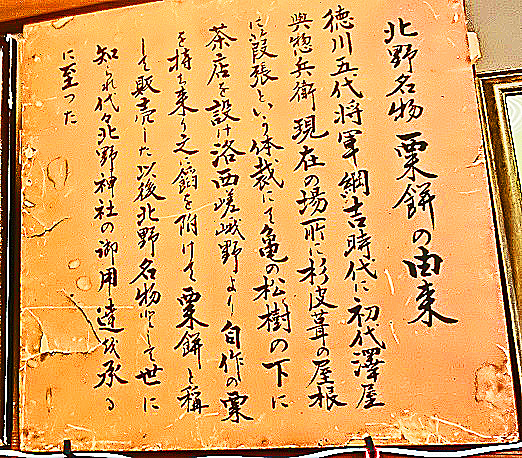 北野名物 粟餅の由来
徳川五代将軍綱吉時代に初代澤屋
與惣兵衛現在の場所に杉皮葺の屋根
に葭張という体裁にて亀の松樹の下に
茶店を設け洛西嵯峨野より自作の粟
を持ち来り之に餡を附けて粟餅と稱
して販売した以後北野名物として世に
知られ代々北野神社の御用達を承る
に至った